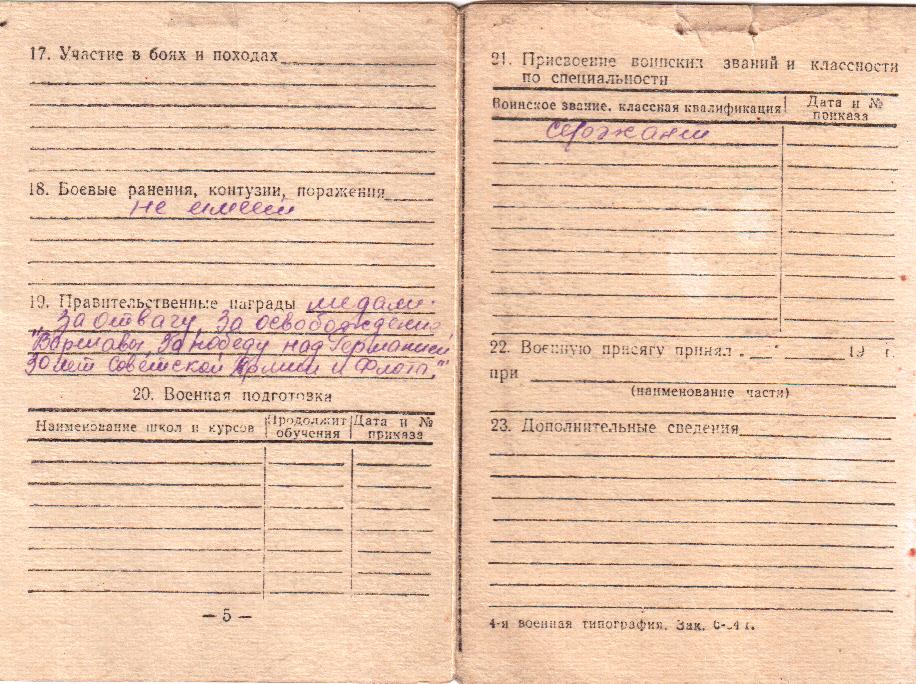 17. Участие в боях и походах
18. Боевые ранения, контузии, поражения
не имеет
19. Правительственные награды медали:
За отвагу, За освобождение
Варшавы, За победу над Германией
30 лет Советской Армии и Флота."
20. Военная подготовка
Наименование школ и курсов
Продолжит. обучения
Дата и № приказа
— 5 —
21. Присвоение воинских званий и классности
по специальности
Воинское звание, классная квалификация
Дата и № приказа
сержант
22. Военную присягу принял 19 г.
при
(наименование части)
23. Дополнительные сведения
4-я военная типография. Зак.